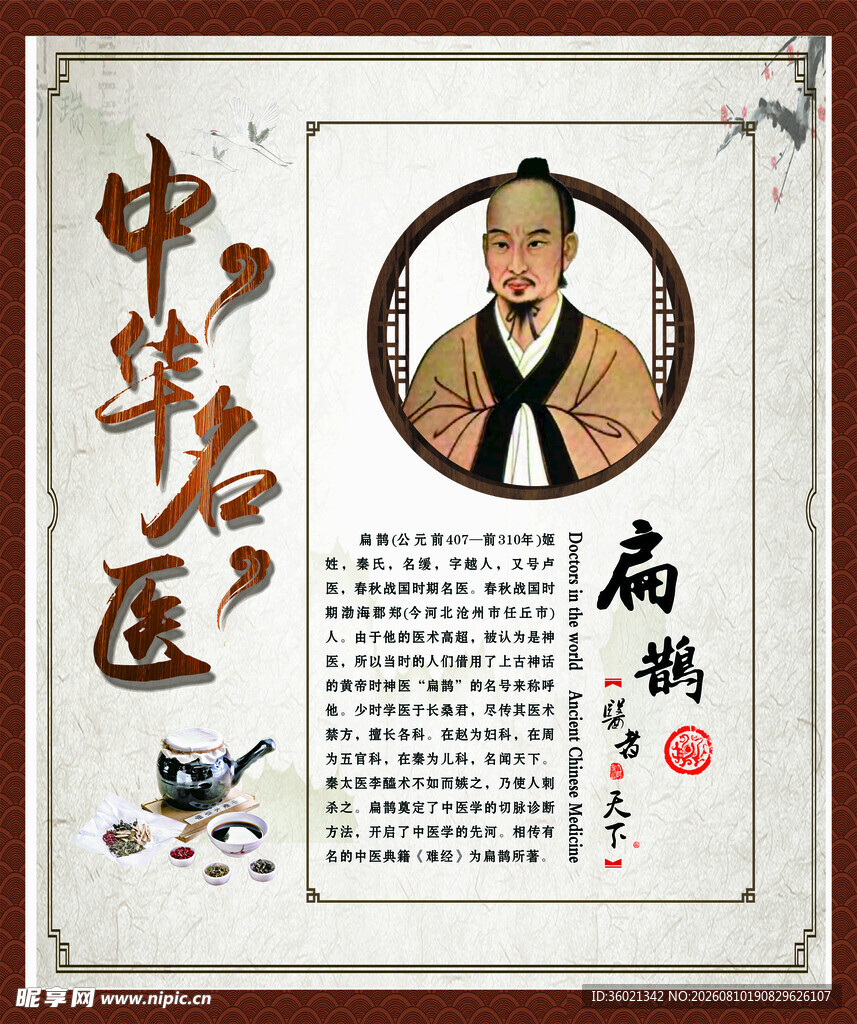 中华名医
扁鹊(公元前407—前310年)姬
姓，秦氏，名缓，字越人，又号卢
医，春秋战国时期名医。春秋战国时
期渤海郡郑(今河北沧州市任丘市)
人。由于他的医术高超，被认为是神
医，所以当时的人们借用了上古神话
的黄帝时神医“扁鹊”的名号来称呼
他。少时学医于长桑君，尽传其医术
禁方，擅长各科。在赵为妇科，在周
为五官科，在秦为儿科，名闻天下。
秦太医李醯术不如而嫉之，乃使人刺
杀之。扁鹊奠定了中医学的切脉诊断
方法，开启了中医学的先河。相传有
名的中医典籍《难经》为扁鹊所著。
Doctors in the world Ancient Chinese Medicine
扁鹊
醫者天下
昵享网 www.nipic.cn
ID:36021342 NO:20260810190829626107